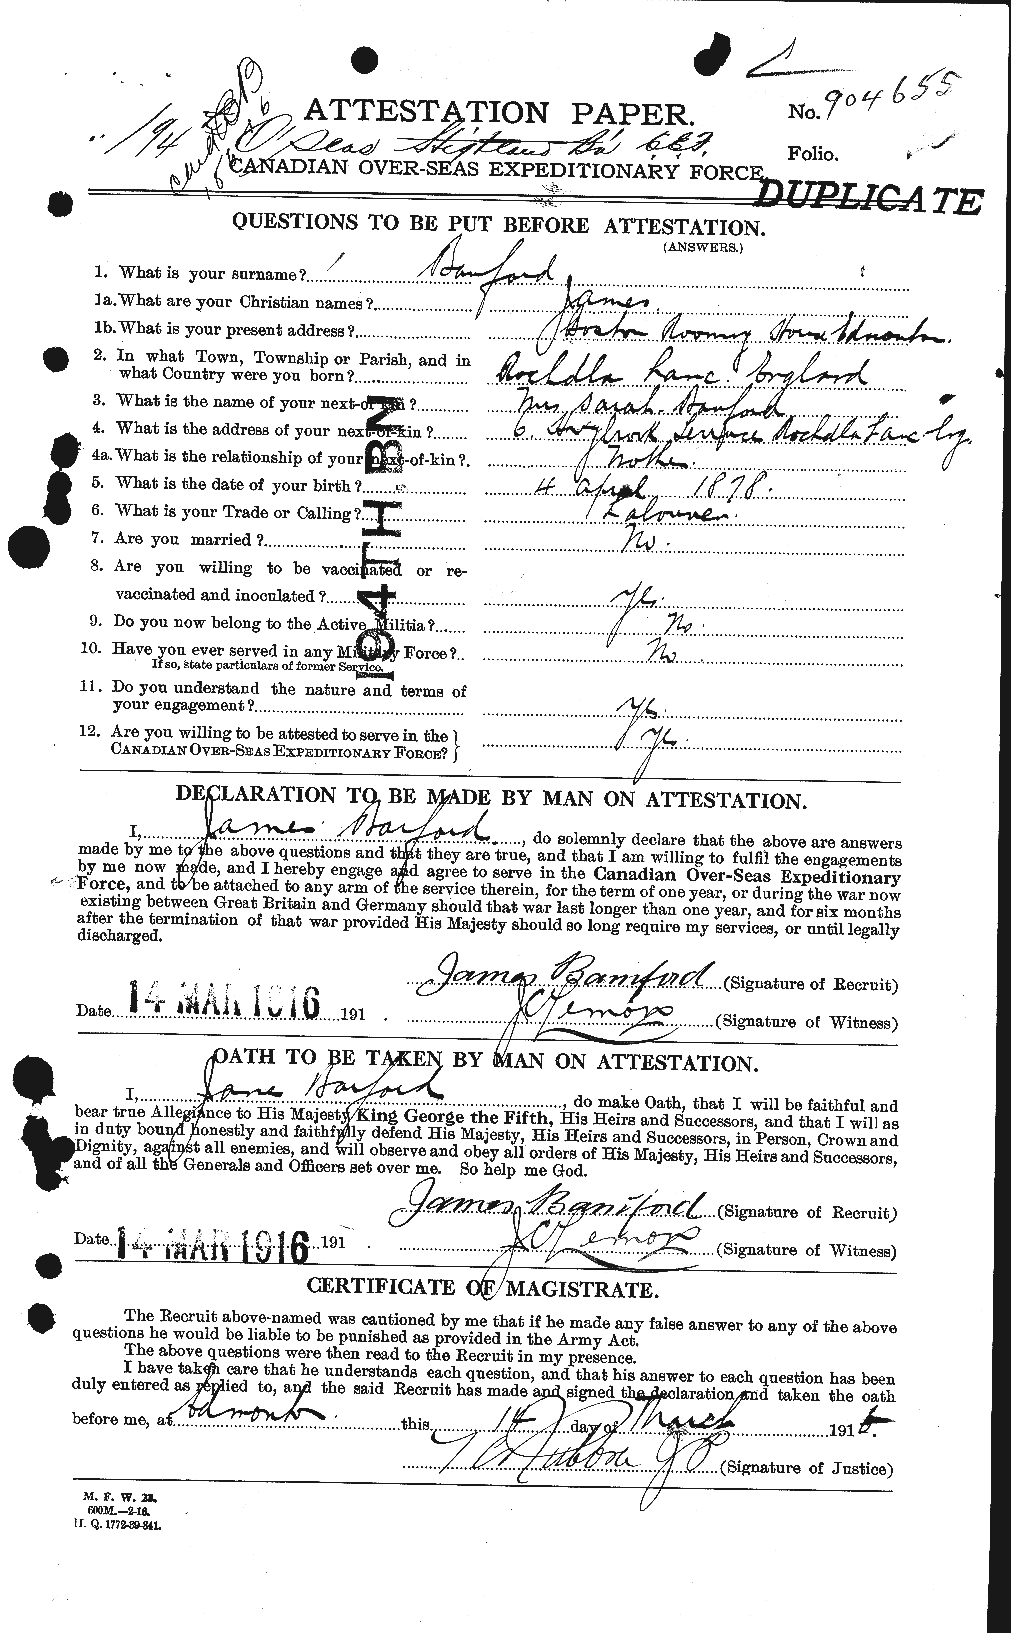 ATTESTATION PAPER.
No. 904655
194 O'Seas Highland Bn C.E.F.
Folio.
CANADIAN OVER-SEAS EXPEDITIONARY FORCE.
DUPLICATE
QUESTIONS TO BE PUT BEFORE ATTESTATION.
(ANSWERS.)
1. What is your surname? Bamford
1a. What are your Christian names? James.
1b. What is your present address? Boston Rooming House Edmonton.
2. In what Town, Township or Parish, and in
what Country were you born? Rochdla Lanc. England
3. What is the name of your next-of-kin? Mrs Sarah Bamford
4. What is the address of your next-of-kin? 6 Terrace Rochdla Lanc Eng.
4a. What is the relationship of your next-of-kin? Mother.
5. What is the date of your birth? 4 April 1878.
6. What is your Trade or Calling? Labourer.
7. Are you married? No.
8. Are you willing to be vaccinated or re-
vaccinated and inoculated? Yes.
9. Do you now belong to the Active Militia? No.
10. Have you ever served in any Military Force? No.
If so, state particulars of former Service.
11. Do you understand the nature and terms of
your engagement? Yes.
12. Are you willing to be attested to serve in the
CANADIAN OVER-SEAS EXPEDITIONARY FORCE? Yes.
194TH BN
DECLARATION TO BE MADE BY MAN ON ATTESTATION.
I, James Bamford, do solemnly declare that the above are answers
made by me to the above questions and that they are true, and that I am willing to fulfil the engagements
by me now made, and I hereby engage and agree to serve in the Canadian Over-Seas Expeditionary
Force, and to be attached to any arm of the service therein, for the term of one year, or during the war now
existing between Great Britain and Germany should that war last longer than one year, and for six months
after the termination of that war provided His Majesty should so long require my services, or until legally
discharged.
James Bamford (Signature of Recruit)
Date 14 MAR 1916 191 .
(Signature of Witness)
OATH TO BE TAKEN BY MAN ON ATTESTATION.
I, Bamford, do make Oath, that I will be faithful and
bear true Allegiance to His Majesty King George the Fifth, His Heirs and Successors, and that I will as
in duty bound honestly and faithfully defend His Majesty, His Heirs and Successors, in Person, Crown and
Dignity, against all enemies, and will observe and obey all orders of His Majesty, His Heirs and Successors,
and of all the Generals and Officers set over me. So help me God.
James Bamford (Signature of Recruit)
Date 14 MAR 1916 191 .
(Signature of Witness)
CERTIFICATE OF MAGISTRATE.
The Recruit above-named was cautioned by me that if he made any false answer to any of the above
questions he would be liable to be punished as provided in the Army Act.
The above questions were then read to the Recruit in my presence.
I have taken care that he understands each question, and that his answer to each question has been
duly entered as replied to, and the said Recruit has made and signed the declaration and taken the oath
before me, at Edmonton. this 14 day of March 1916.
J P (Signature of Justice)
M. F. W. 23.
600M.—2-16.
H. Q. 1772-39-841.